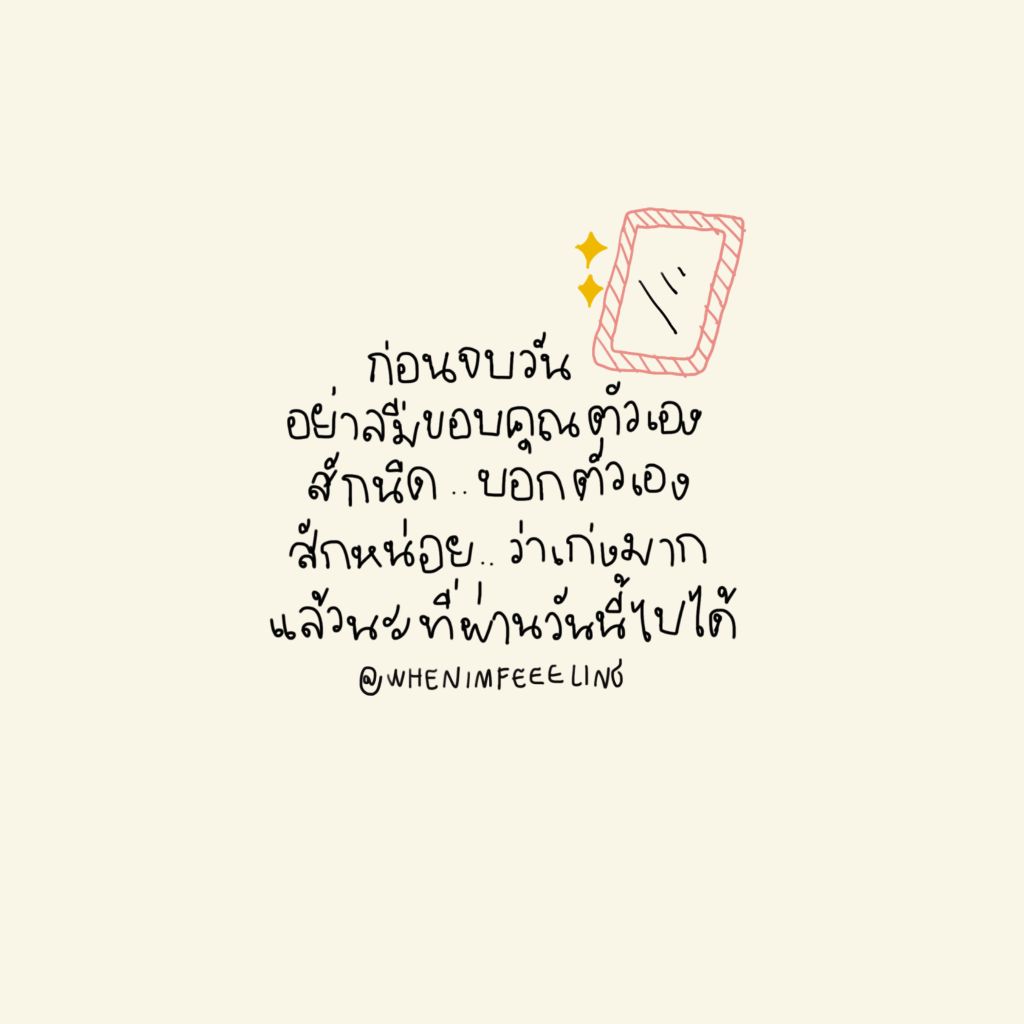 ก่อนจบวัน
อย่าลืมขอบคุณตัวเอง
สักนิด.. บอกตัวเอง
สักหน่อย.. ว่าเก่งมาก
แล้วนะที่ผ่านวันนี้ไปได้
@WHENIMFEEELING